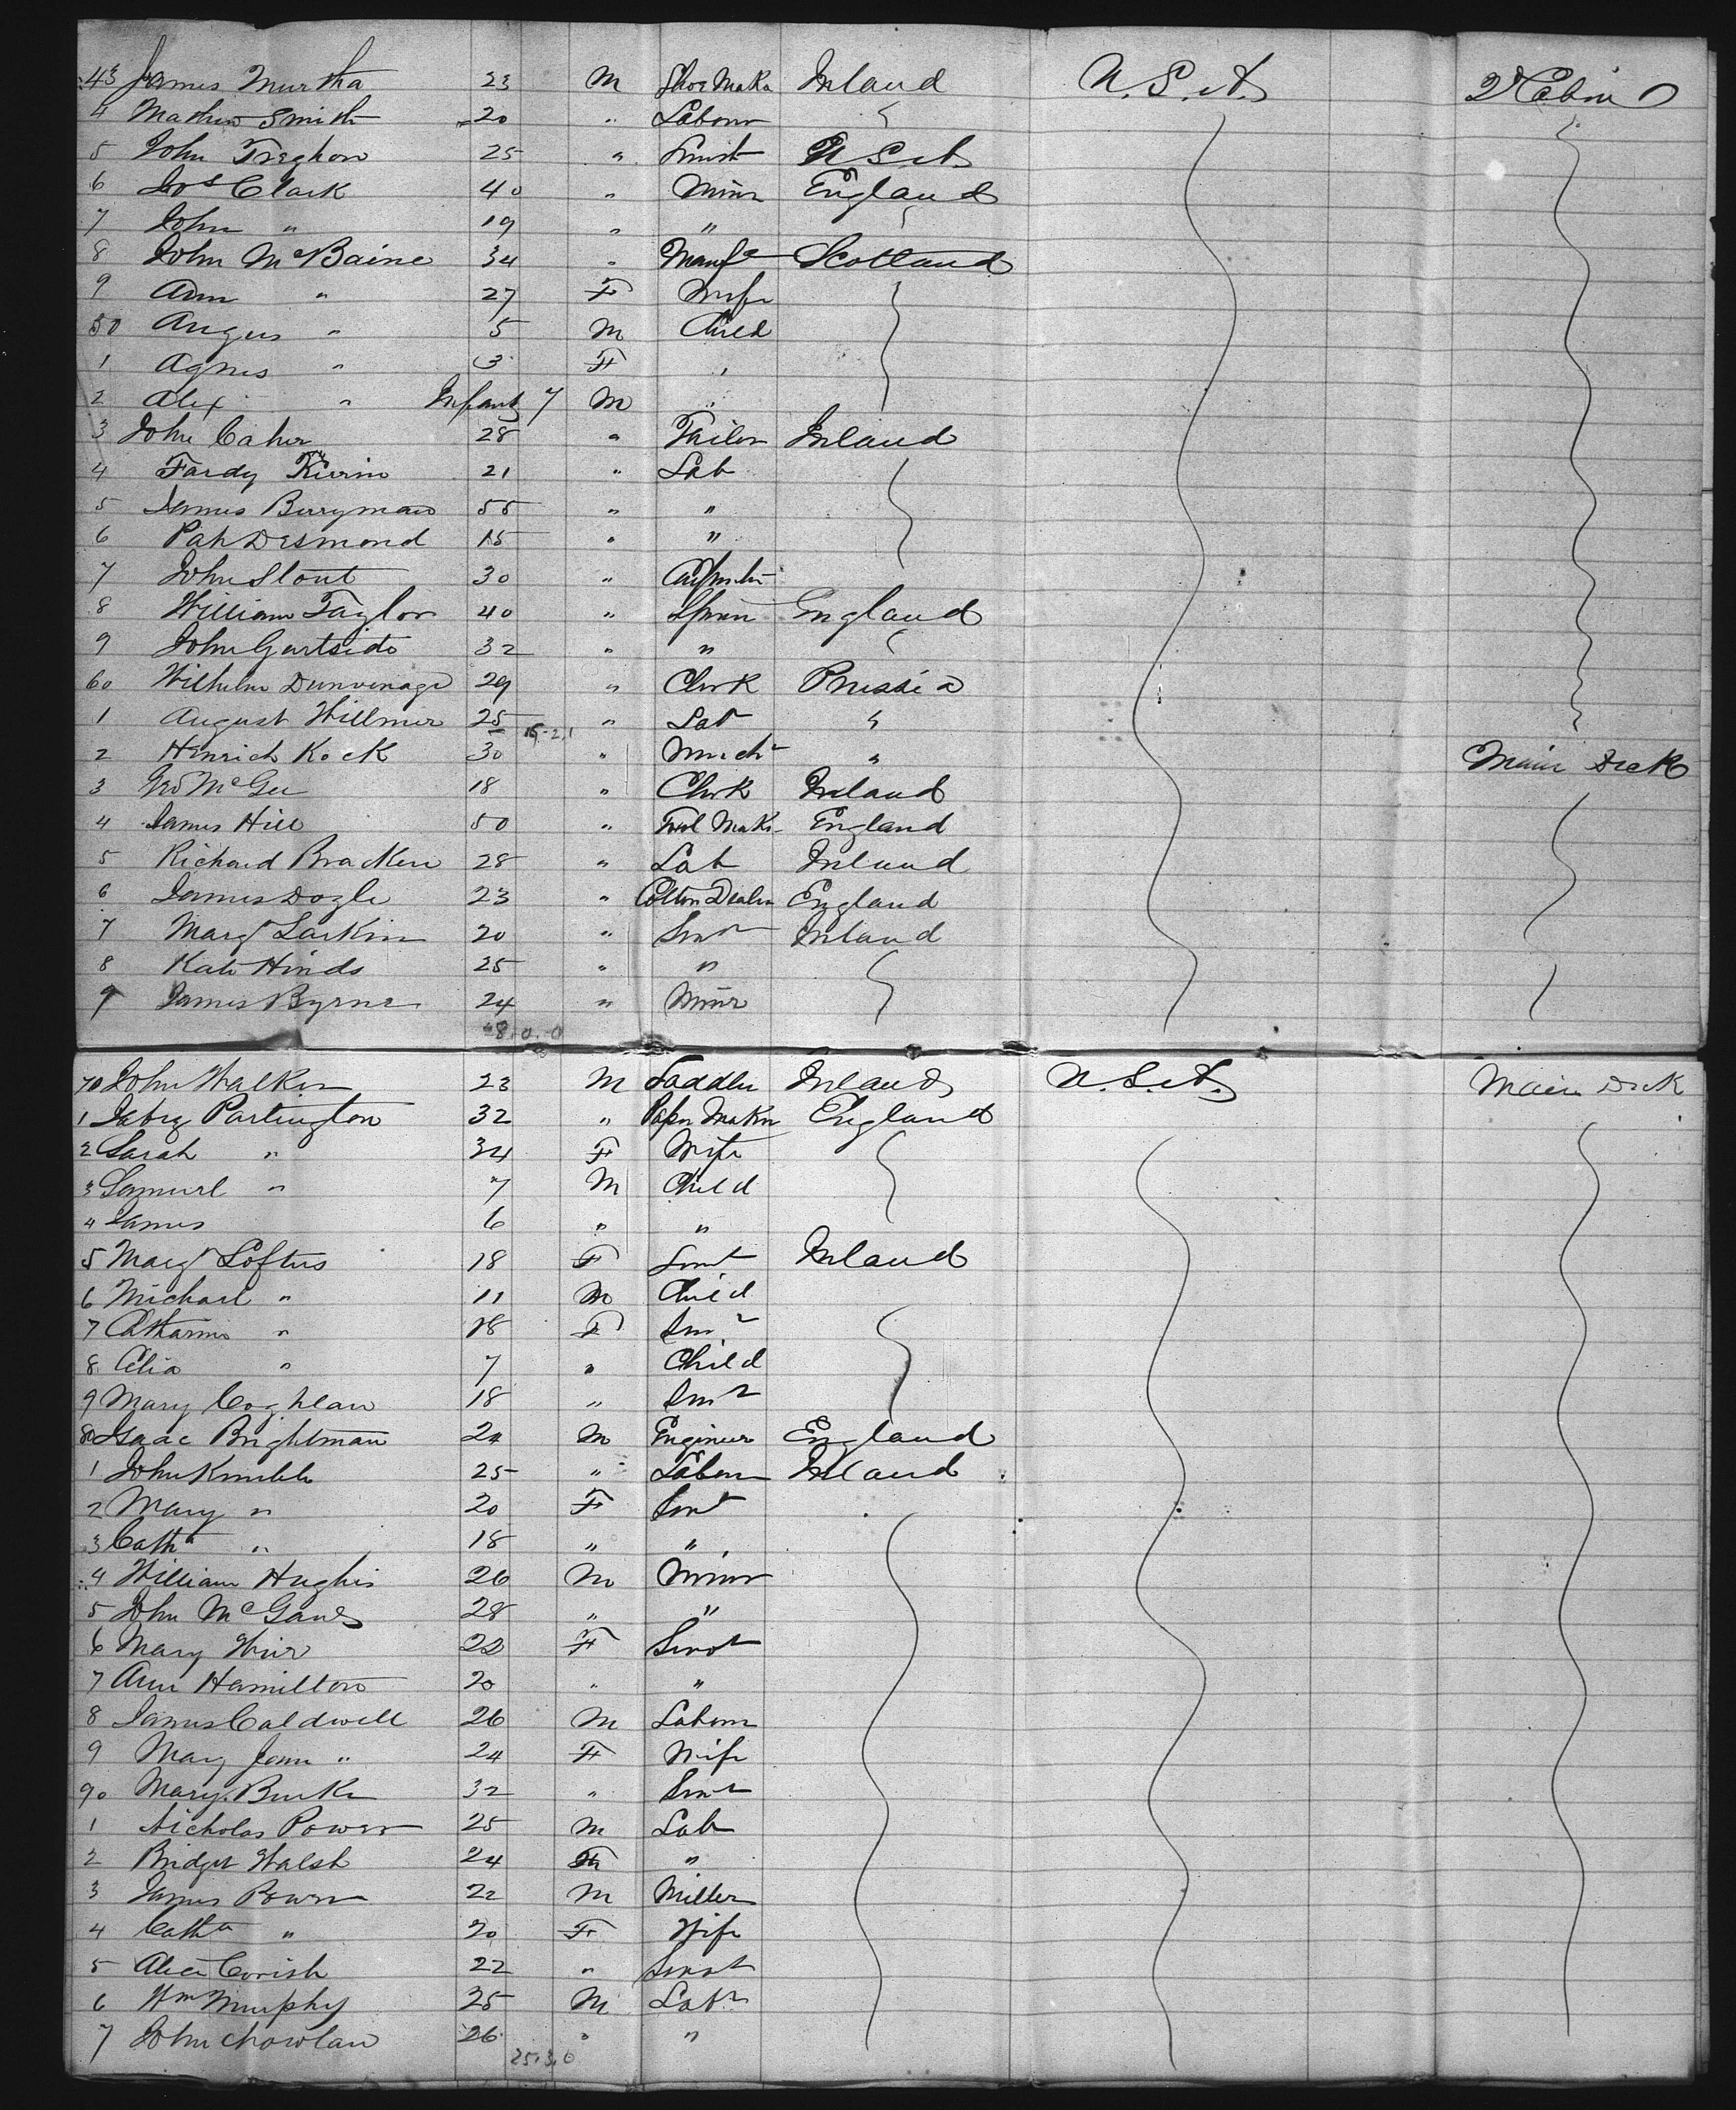 43 James Murtha 23 M Shoe Maker Ireland U.S.A. 2d Cabin
4 Mathew Smith 20 " Labour
5 John Treghon 25 " U S A
6 Jos Clark 40 " Miner England
7 John " 19 " "
8 John McBaine 34 " Manfr Scotland
9 Ann " 27 F Wife
50 Angus " 5 M Child
1 Agnes " 3 F "
2 Alex " Infant 7 M "
3 John Caher 28 " Tailor Ireland
4 Fardy Kirvin 21 " Lab
5 James Berryman 55 " "
6 Pat Desmond 15 " "
7 John Stout 30 "
8 William Taylor 40 " England
9 John Gartside 32 " "
60 Wilhelm Dunvenage 29 " Clerk Prussia
1 August Willmer 25 " Lab "
15-2,1
2 Henrich Kock 30 " Mercht " Main Deck
3 McGee 18 " Clerk Ireland
4 James Hill 50 " Tool Maker England
5 Richard Bracken 28 " Lab Ireland
6 James Dogle 23 " Cotton Dealer England
7 Margt Larkin 20 " Servt Ireland
8 Kate Hinds 25 " "
9 James Byrne 24 " Miner
8.0.0
70 John Walker 23 M Saddler Ireland U.S.A. Main Deck
1 Jabez Partington 32 " Paper Maker England
2 Sarah " 34 F Wife
3 Samuel " 7 M Child
4 James 6 " "
5 Margt Loftus 18 F Servt Ireland
6 Michael " 11 M Child
7 Catharine " 18 F Servt
8 Celia " 7 " Child
9 Mary Coghlan 18 " Servt
80 Isaac Brightman 24 M Engineer England
1 John 25 " Labour Ireland
2 Mary " 20 F Servt
3 Cath " 18 " "
4 William Hughes 26 M Miner
5 John 28 " "
6 Mary Weir 22 F Servt
7 Ann Hamilton 20 " "
8 James Caldwell 26 M Labour
9 Mary Jane " 24 F Wife
90 Mary Burke 32 " Servt
1 Nicholas Power 25 M Lab
2 Bridget Walsh 24 F "
3 James Power 22 M Miller
4 Catha " 20 F Wife
5 Alice Corish 22 " Servt
6 Wm Murphy 35 M Labr
7 John Chowlan 26 " "
25.3.0